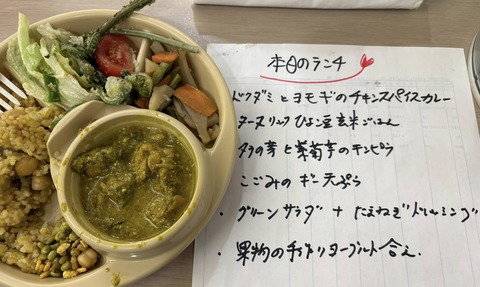 本日のランチ
ドクダミとヨモギのチキンスパイスカレー
ターメリックひよこ豆玄米ごはん
タラの芽と紫菊芋のキンピラ
こごみのギー天ぷら
・グリーンサラダ + たまねぎドレッシング
・果物の手作りヨーグルト合え.